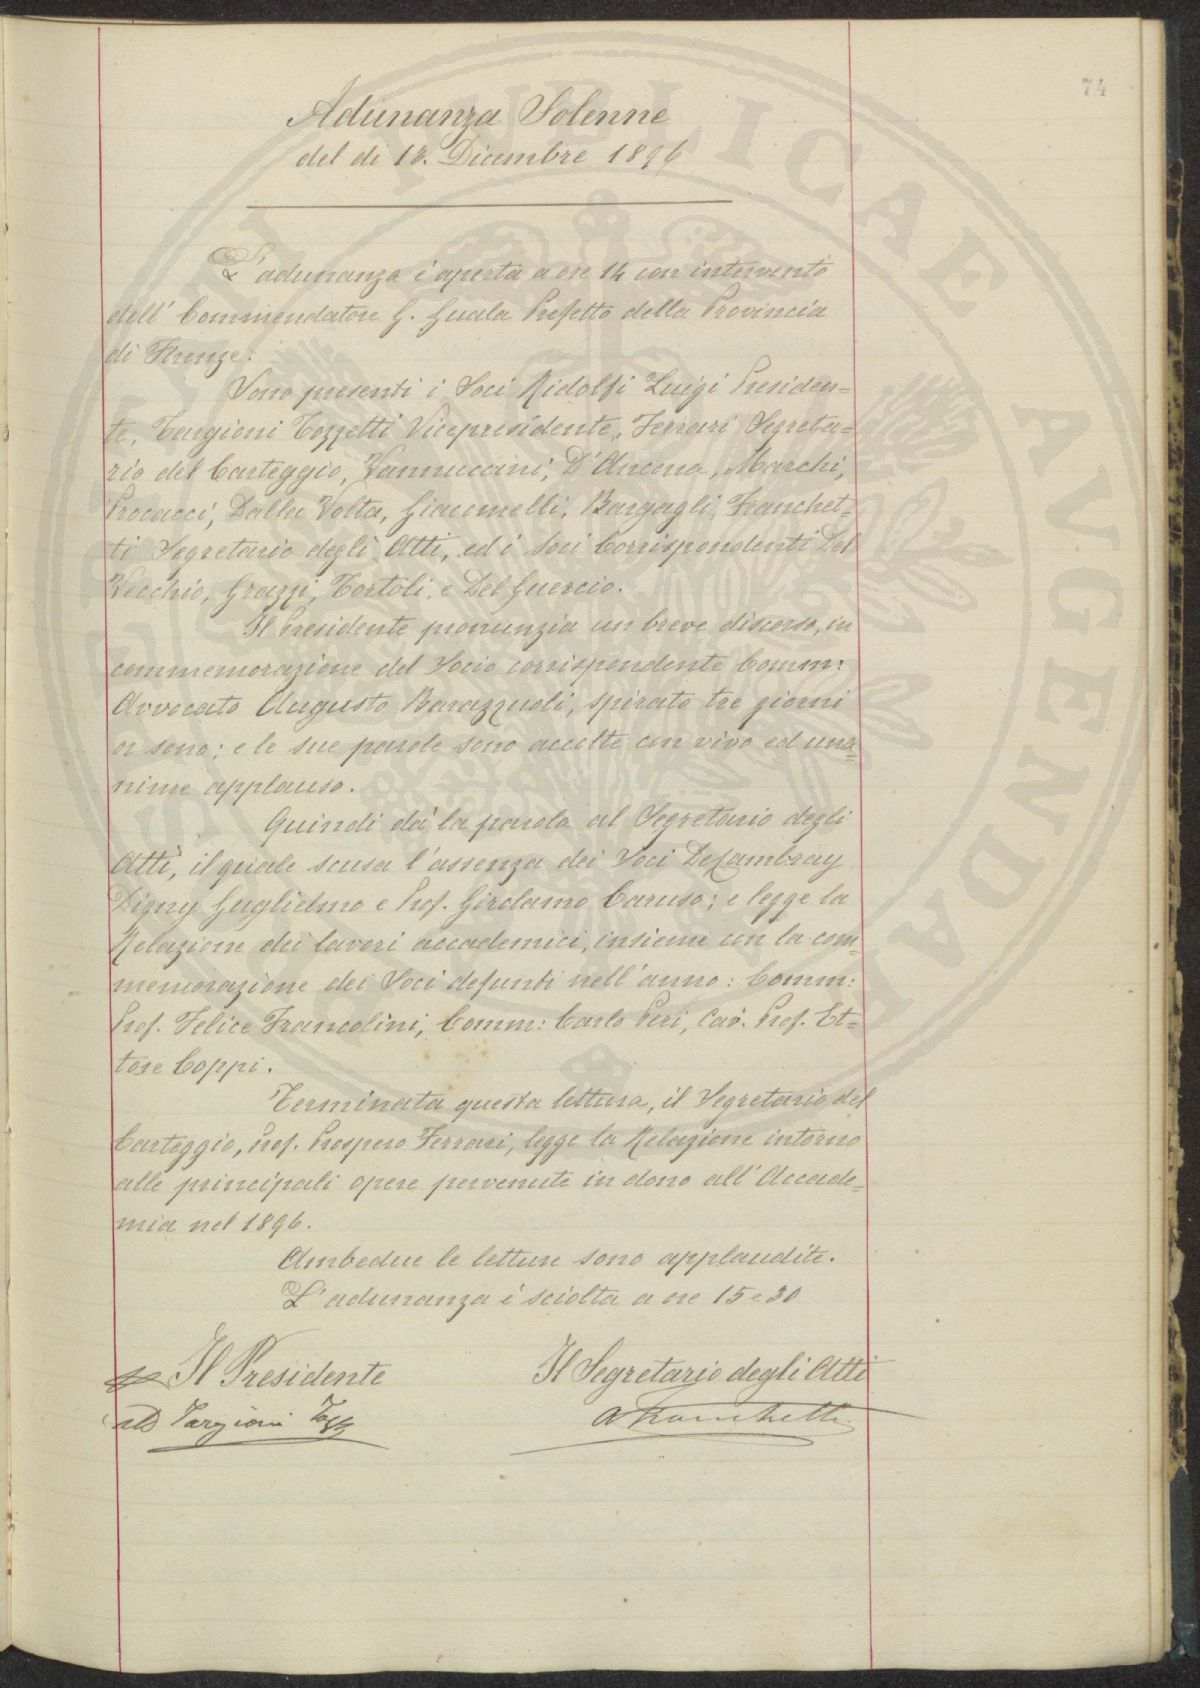 74
Adunanza Solenne
del dì 13. Dicembre 1896
L'adunanza è aperta a ore 14 con intervento
dell' Commendatore G. Guala Prefetto della Provincia
di Firenze.
Sono presenti i Soci Ridolfi Luigi Presiden=
te, Targioni Tozzetti Vicepresidente, Ferrari Segreta=
rio del Carteggio, Vannuccini, D'Ancona, Marchi,
Procacci, Dalla Volta, Giacomelli, Bargagli, Franchet=
ti Segretario degli Atti, ed i Soci Corrispondenti Del
Vecchio, Grazzi, Tortoli, e Del Guercio.
Il Presidente pronunzia un breve discorso, in
commemorazione del Socio corrispondente Comm:
Avvocato Augusto Barazzuoli, spirato tre giorni
or sono; e le sue parole sono accolte con vivo ed una=
nime applauso.
Quindi dà la parola al Segretario degli
Atti, il quale scusa l'assenza dei Soci DeCambray
Digny Guglielmo e Prof. Girolamo Caruso; e legge la
Relazione dei lavori accademici, insieme con la com=
memorazione dei Soci defunti nell'anno: Comm:
Prof. Felice Francolini, Comm: Carlo Peri, Cav. Prof. Et=
tore Coppi.
Terminata questa lettura, il Segretario del
Carteggio, Prof. Prospero Ferrari, legge la Relazione intorno
alle principali opere pervenute in dono all'Accade=
mia nel 1896.
Ambedue le letture sono applaudite.
L'adunanza è sciolta a ore 15 e 30
Il Presidente
Il Segretario degli Atti
AD Targioni Tozz
A Franchetti